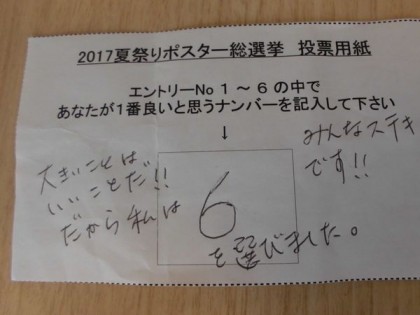 2017夏祭りポスター総選挙　投票用紙
エントリーNo １～６の中で
あなたが１番良いと思うナンバーを記入して下さい
↓
大きいことは
いいことだ!!
だから私は
6
を選びました。
みんなステキ
です!!